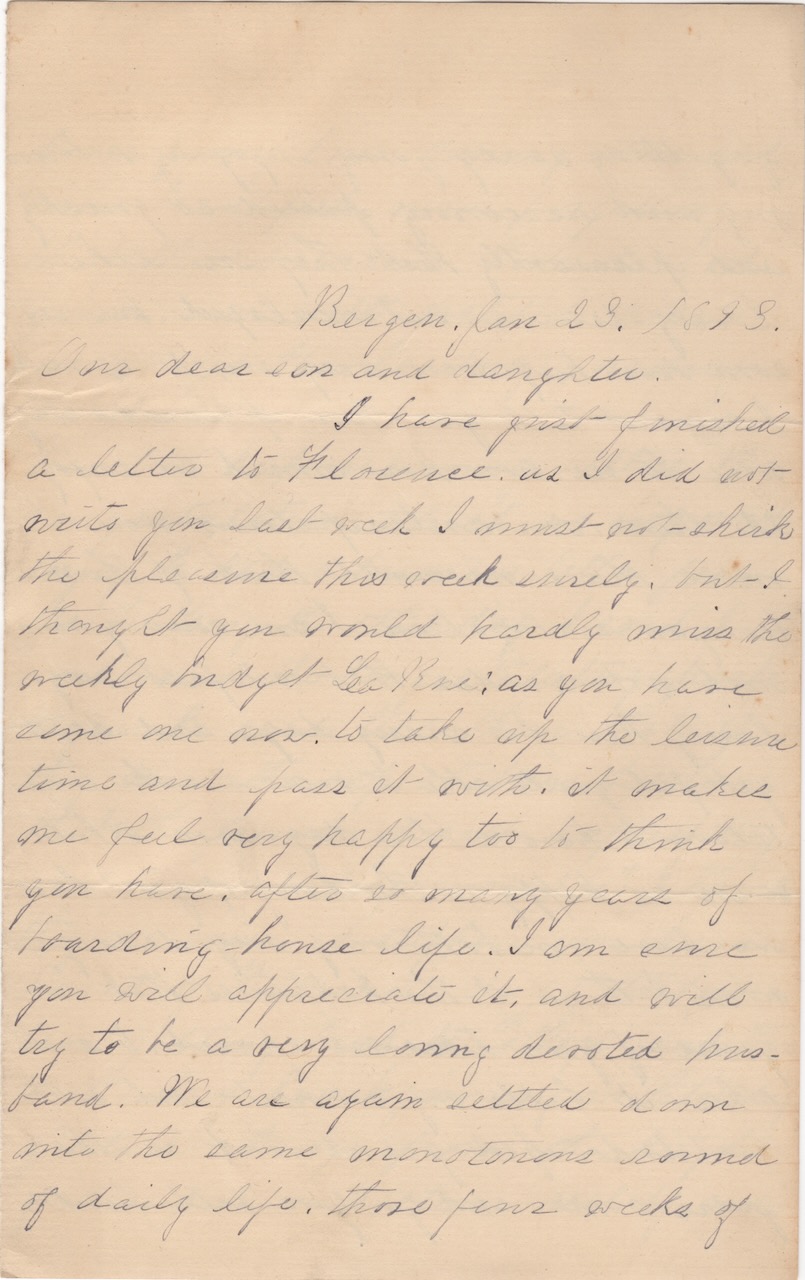 Bergen. Jan 23. 1893.
Our dear son and daughter.
I have just finished
a letter to Florence. as I did not
write you last week I must not shirk
the pleasure this week surely. but I
thought you would hardly miss the
weekly budget La Rue: as you have
some one now. to take up the leisure
time and pass it with. it makes
me feel very happy too to think
you have. after so many years of
boarding-house life. I am sure
you will appreciate it, and will
try to be a very loving devoted hus-
band. We are again settled down
into the same monotonous round
of daily life. those four weeks of